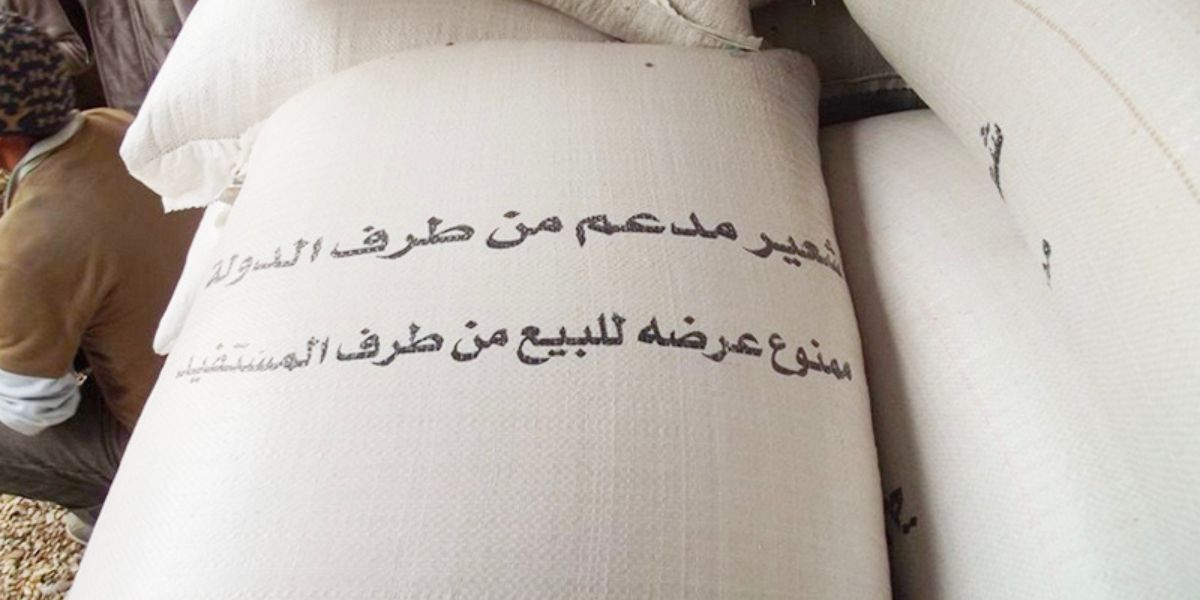 شعير مدعم من طرف الدولة
ممنوع عرضه للبيع من طرف المستفيد